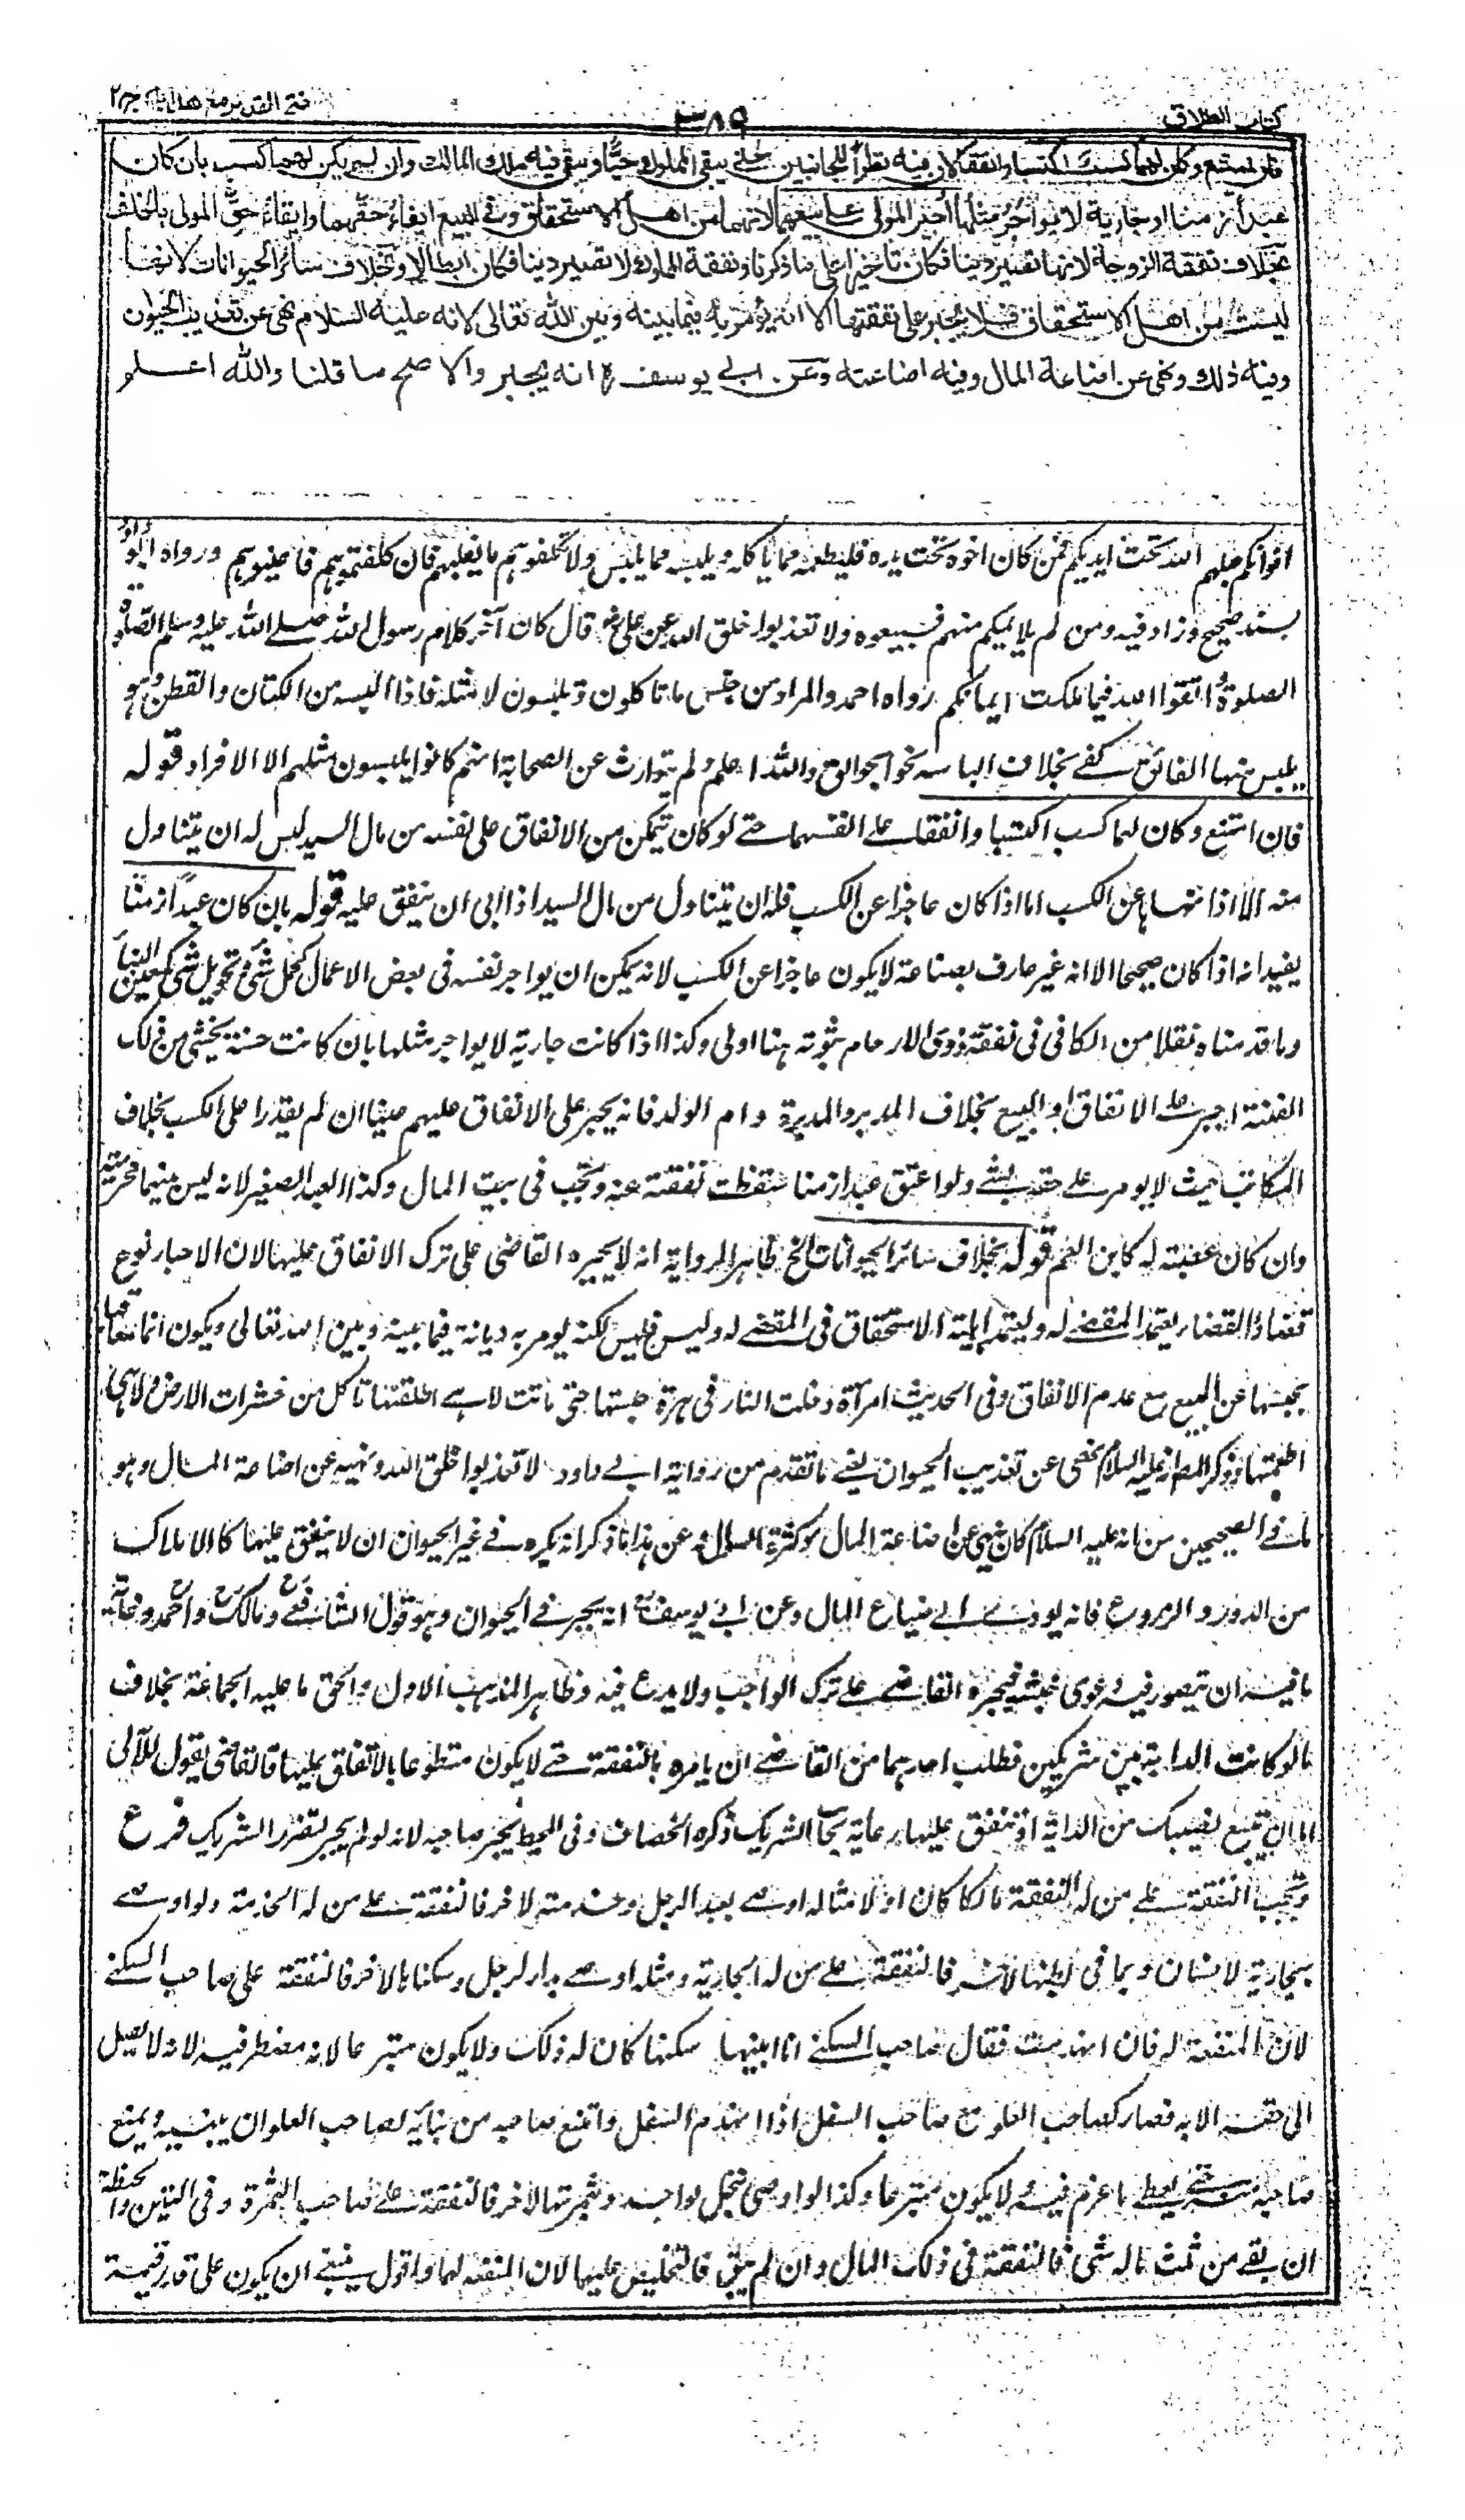 كتاب الطلاق ٣٨٩ فتح القدير مع هدايه ج ٢
فان امتنع وكان لهما كسب اكتسبا وانفقا لان فيه نظرا للجانبين حتى يبقى المملوك حيا ويبقى فيه ملك المالك وان لم يكن لهما كسب بان كان
عبدا زمنا او جارية لا يواجر مثلها اجبر المولى على بيعهما لانهما من اهل الاستحقاق وفي البيع ايفاء حقهما وابقاء حق المولى بالخلف
بخلاف نفقة الزوجة لانها تصير دينا فكان تاخيرا على ما ذكرنا ونفقة المملوك لا تصير دينا فكان ابطالا وبخلاف سائر الحيوانات لانها
ليست من اهل الاستحقاق فلا يجبر على نفقتها الا انه يؤمر به فيما بينه وبين الله تعالى لانه عليه السلام نهى عن تعذيب الحيوان
وفيه ذلك ونهى عن اضاعة المال وفيه اضاعته وعن ابي يوسف ره انه يجبر والاصح ما قلنا والله اعلم
اخوانكم جعلهم الله تحت ايديكم فمن كان اخوه تحت يده فليطعمه مما ياكله ويلبسه مما يلبس ولا تكلفوهم ما يغلبهم فان كلفتموهم فاعينوهم ورواه ابو داود
بسند صحيح وزاد فيه ومن لم يلايمكم منهم فبيعوه ولا تعذبوا خلق الله عن علي رض قال كان آخر كلام رسول الله صلى الله عليه وسلم الصلوة
الصلوة اتقوا الله فيما ملكت ايمانكم رواه احمد والمراد من جنس ما تاكلون وتلبسون لا مثله فاذا البسه من الكتان والقطن وهو
يلبس منها الفائق كفى بخلاف الباسه نحو الجوالق والله اعلم ولم يتوارث عن الصحابة انهم كانوا يلبسون مثلهم الا الافراد قوله
فان امتنع وكان لهما كسب اكتسبا وانفقا على انفسهما حتى لو كان يتمكن من الانفاق على نفسه من مال السيد ليس له ان يتناول
منه الا اذا نهاه عن الكسب اما اذا كان عاجزا عن الكسب فله ان يتناول من مال السيد اذا ابى ان ينفق عليه قوله بان كان عبدا زمنا
يفيد انه اذا كان صحيحا الا انه غير عارف بصناعة لا يكون عاجزا عن الكسب لانه يمكن ان يواجر نفسه في بعض الاعمال كحمل شئ وتحويل شئ كمعين البناء
وما قدمناه نقلا من الكافي في نفقة ذوي الارحام ثبوته هنا اولى وكذا اذا كانت جارية لا يواجر مثلها بان كانت حسنة يخشى من ذلك
الفتنة اجبر على الانفاق او البيع بخلاف المدبر والمدبرة وام الولد فانه يجبر على الانفاق عليهم عينا ان لم يقدرا على الكسب بخلاف
المكاتب حيث لا يومر على حقه بشئ ولو اعتق عبدا زمنا سقطت نفقته عنه وتجب في بيت المال وكذا العبد الصغير لانه ليس بينهما محرمية
وان كان عصبته له كابن العم قوله بخلاف سائر الحيوانات الخ ظاهر الرواية انه لا يجبره القاضي على ترك الانفاق عليها لان الاجبار نوع
قضاء والقضاء يعتمد المقضي له ويعتمد اهلية الاستحقاق في المقضي له وليس فليس لكنه يومر به ديانة فيما بينه وبين الله تعالى ويكون اثما معاقبا
بحبسها عن البيع مع عدم الانفاق وفي الحديث امرأة دخلت النار في هرة حبستها حتى ماتت لا هي اطلقتها تاكل من خشرات الارض ولا هي
اطعمتها وذكر المص انه عليه السلام نهى عن تعذيب الحيوان يعني ما تقدم من رواية ابي داود لا تعذبوا خلق الله ونهيه عن اضاعة المال وهو
ما في الصحيحين من انه عليه السلام كان ينهى عن اضاعة المال وكثرة السؤال وعن هذا ما ذكر انه يكره في غير الحيوان ان لا ينفق عليها كالاملاك
من الدور والزروع فانه يودي الى ضياع المال وعن ابي يوسف رح انه يجبر في الحيوان وهو قول الشافعي رح ومالك رح واحمد رح وغاية
ما فيه ان يتصور فيه دعوى حسبة فيجبره القاضي على ترك الواجب ولا بدع فيه وظاهر المذهب الاول والحق ما عليه الجماعة بخلاف
ما لو كانت الدابة بين شريكين فطلب احدهما من القاضي ان يامره بالنفقة حتى لا يكون متطوعا بالانفاق عليها فالقاضي يقول للآبي
اما ان تبيع نصيبك من الدابة او تنفق عليها رعاية بجانب الشريك ذكره الخصاف وفي المحيط يجبر صاحبه لانه لو لم يجبر لتضرر الشريك فرع
وتجب النفقة على من له المنفعة مالكا كان او لا مثاله اوصى بعبد الرجل وخدمته لاخر فالنفقة على من له الخدمة ولو اوصى
بجارية لانسان وبما في بطنها لآخر فالنفقة على من له الجارية ومثله اوصى بدار لرجل وسكناها لاخر فالنفقة على صاحب السكنى
لان المنفعة له فان انهدمت فقال صاحب السكنى انا ابنيها واسكنها كان له ذلك ولا يكون متبرعا لانه مضطر فيه لانه لا يصل
الى حقه الا به فصار كصاحب العلو مع صاحب السفل اذا انهدم السفل وامتنع صاحبه من بنائه لصاحب العلو ان يبنيه ويمنع
صاحبه منه حتى يعطى ما غرم فيه ولا يكون متبرعا وكذا لو اوصى بنخل لواحد وثمرتها لاخر فالنفقة على صاحب الثمرة وفي التبن والحنطة
ان بقي من ثلث ماله شئ فالنفقة في ذلك المال وان لم يبق فالتخليص عليهما لان المنفعة لهما واقول ينبغي ان يكون على قدر قيمة